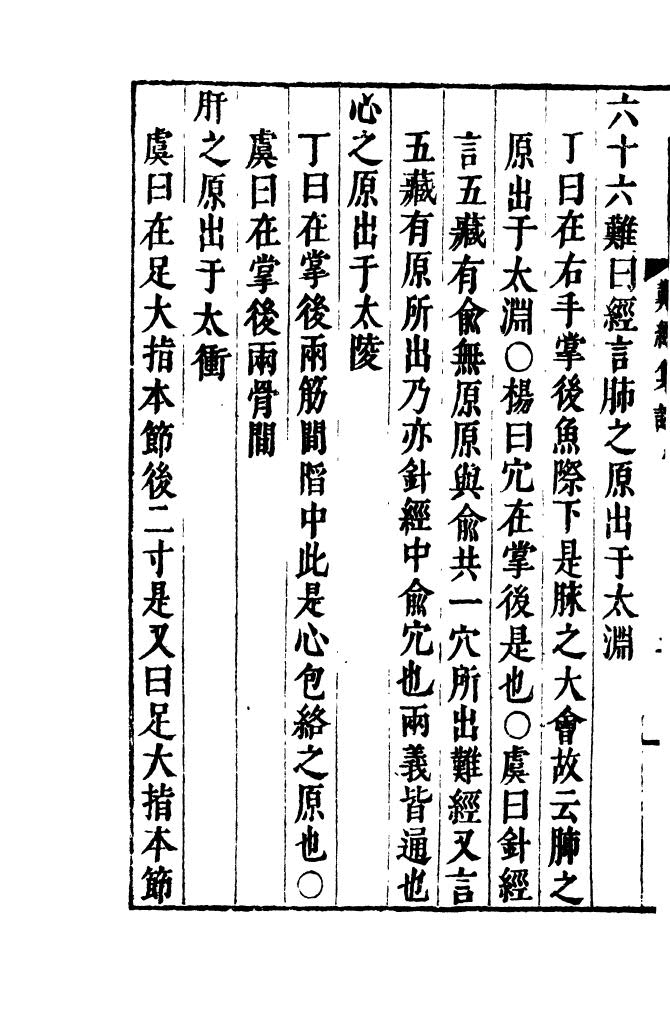 六十六難曰經言肺之原出于太淵
丁曰在右手掌後魚際下是脉之大會故云肺之
原出于太淵○楊曰穴在掌後是也○虞曰針經
言五藏有俞無原原與俞共一穴所出難經又言
五藏有原所出乃亦針經中俞穴也兩義皆通也
心之原出于太陵
丁曰在掌後兩筋間陷中此是心包絡之原也○
虞曰在掌後兩骨間
肝之原出于太衝
虞曰在足大指本節後二寸是又曰足大指本節